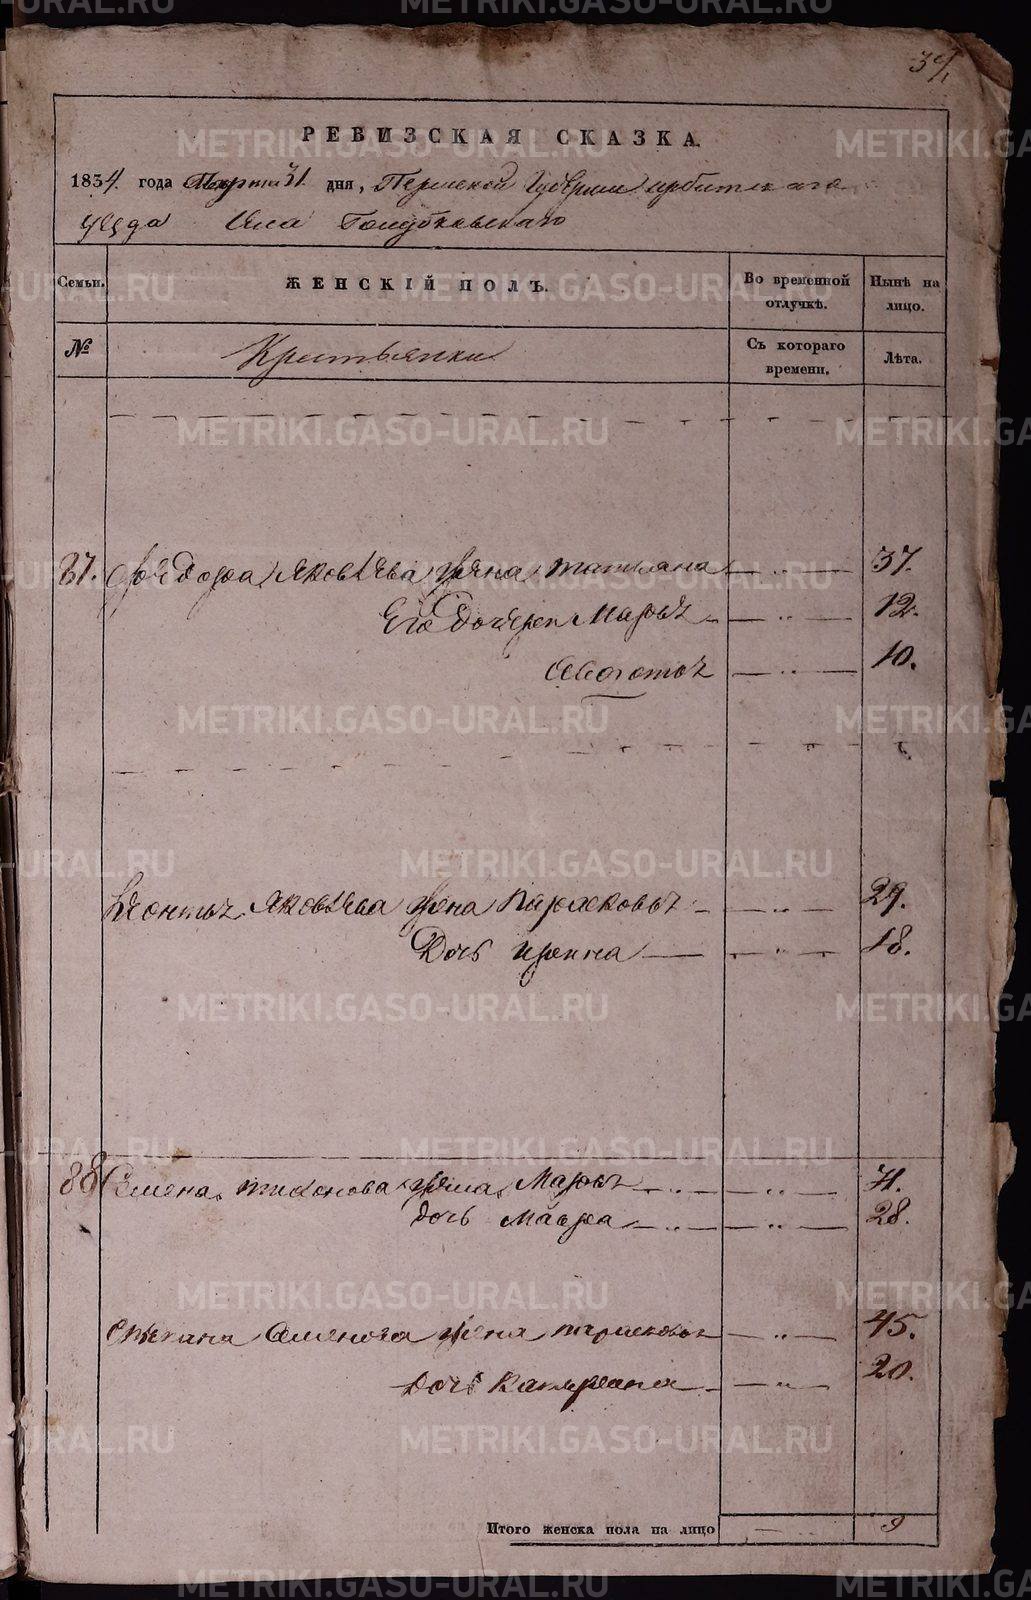 34
РЕВИЗСКАЯ СКАЗКА.
1834. года Марта 31. дня, Пермской Губернии ирбитскаго
уезда Села Голубковскаго
Семьи. ЖЕНСКІЙ ПОЛЪ. Во временной отлучкѣ. Нынѣ на лицо.
№ Крестьянки Съ котораго времени. Лѣта.
87. Федора Яковлева жена татьяна 37.
Его дочери Марья 12.
10.
Леонтья Яковлева жена 29.
Дочь ирина 18.
88 Семена тихонова жена Марья 71.
дочь Мавра 28.
Степана Семенова жена парасковья 45.
дочь Катерина 20.
Итого женска пола на лицо 9
METRIKI.GASO-URAL.RU